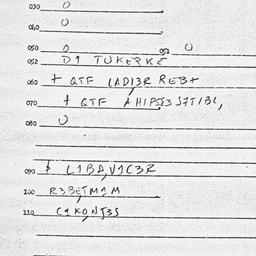 030 0
040 0
050 0 051 0
052 D1 TUKERKE
060 + QTF LADI3R REB+
070 + QTF AHIPSE3 S7TIBL,
080 0
090 $ L1BA,V1C3R
100 R3BETM1M
110 C1KONJ3S